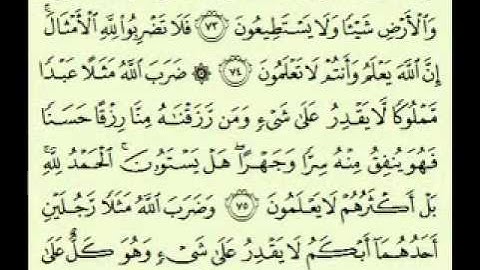 وَٱلْأَرْضِ شَيْـًٔا وَلَا يَسْتَطِيعُونَ ٧٣ فَلَا تَضْرِبُوا۟ لِلَّهِ ٱلْأَمْثَالَ ۚ
إِنَّ ٱللَّهَ يَعْلَمُ وَأَنتُمْ لَا تَعْلَمُونَ ٧٤ ۞ ضَرَبَ ٱللَّهُ مَثَلًا عَبْدًا
مَّمْلُوكًا لَّا يَقْدِرُ عَلَىٰ شَىْءٍ وَمَن رَّزَقْنَـٰهُ مِنَّا رِزْقًا حَسَنًا
فَهُوَ يُنفِقُ مِنْهُ سِرًّا وَجَهْرًا ۖ هَلْ يَسْتَوُۥنَ ۚ ٱلْحَمْدُ لِلَّهِ ۚ
بَلْ أَكْثَرُهُمْ لَا يَعْلَمُونَ ٧٥ وَضَرَبَ ٱللَّهُ مَثَلًا رَّجُلَيْنِ
أَحَدُهُمَآ أَبْكَمُ لَا يَقْدِرُ عَلَىٰ شَىْءٍ وَهُوَ كَلٌّ عَلَىٰ